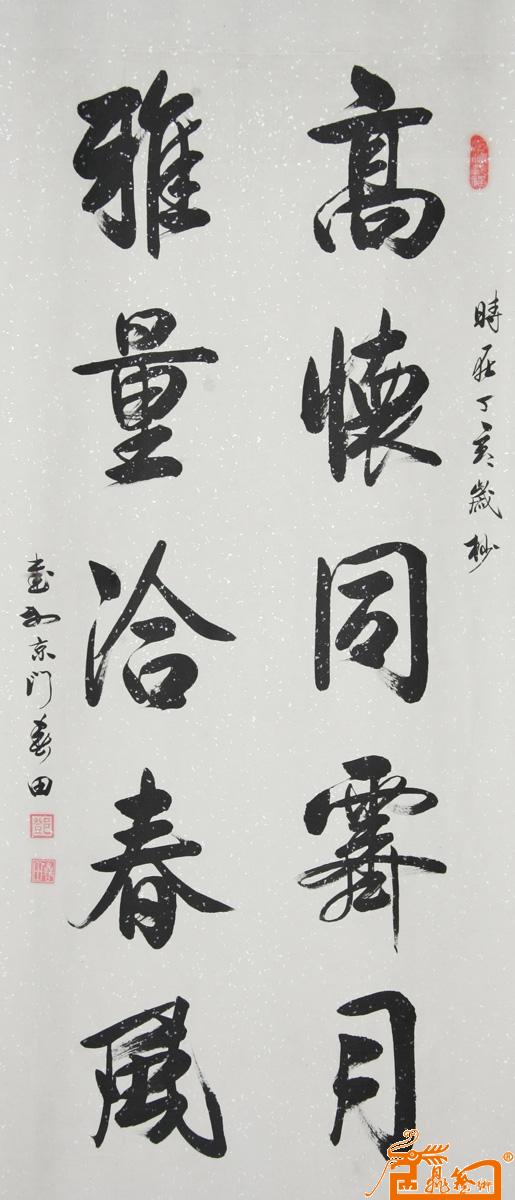 時在丁亥歲杪
高懷同霽月
雅量洽春風
書於京門春田